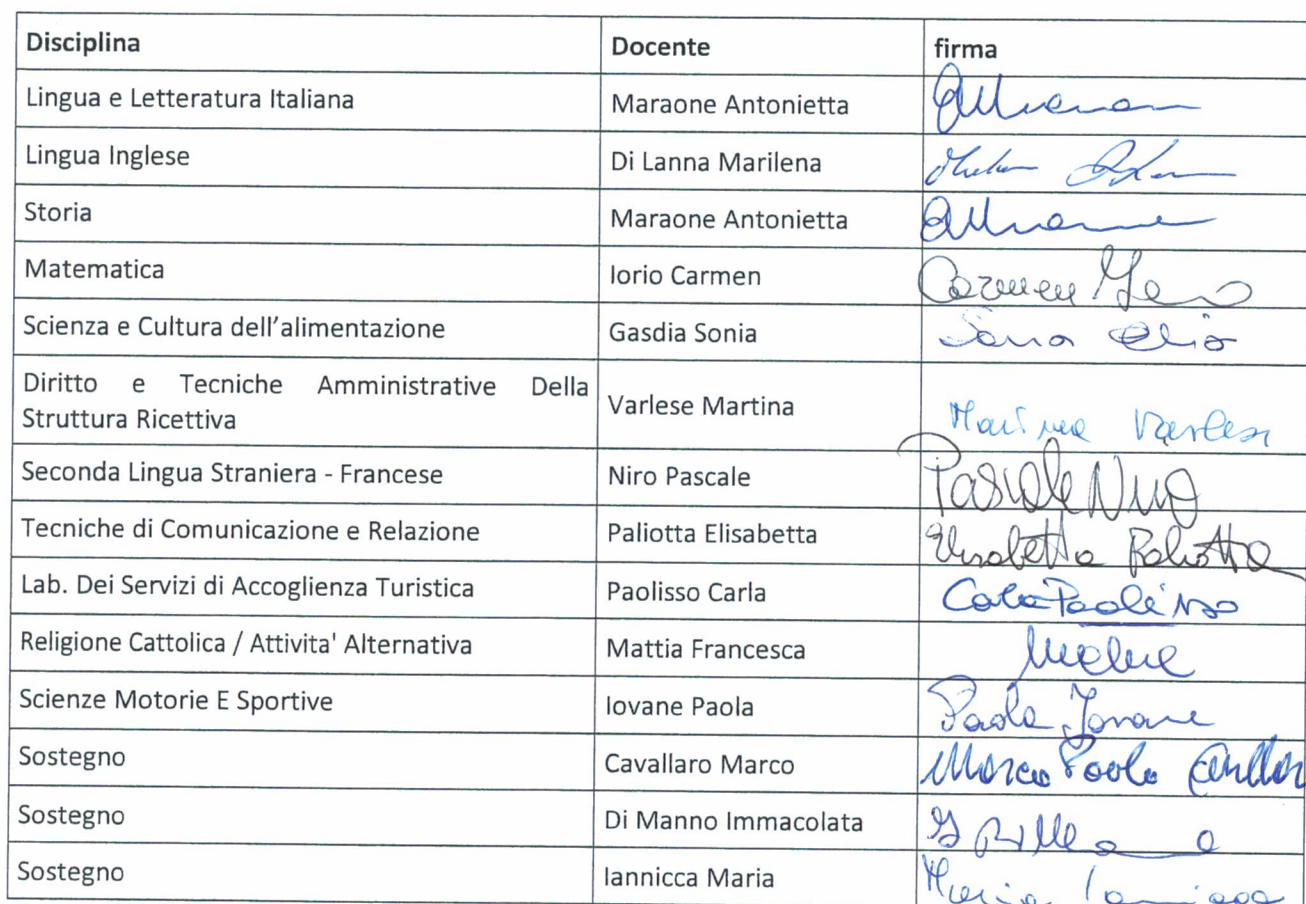 Disciplina Docente firma
Lingua e Letteratura Italiana Maraone Antonietta
Lingua Inglese Di Lanna Marilena
Storia Maraone Antonietta
Matematica Iorio Carmen Carmen
Scienza e Cultura dell'alimentazione Gasdia Sonia
Diritto e Tecniche Amministrative Della
Struttura Ricettiva Varlese Martina
Seconda Lingua Straniera - Francese Niro Pascale Pascale Niro
Tecniche di Comunicazione e Relazione Paliotta Elisabetta Elisabetta Paliotta
Lab. Dei Servizi di Accoglienza Turistica Paolisso Carla Carla Paolisso
Religione Cattolica / Attivita' Alternativa Mattia Francesca
Scienze Motorie E Sportive Iovane Paola Paola Iovane
Sostegno Cavallaro Marco Marco Paolo
Sostegno Di Manno Immacolata
Sostegno Iannicca Maria Maria